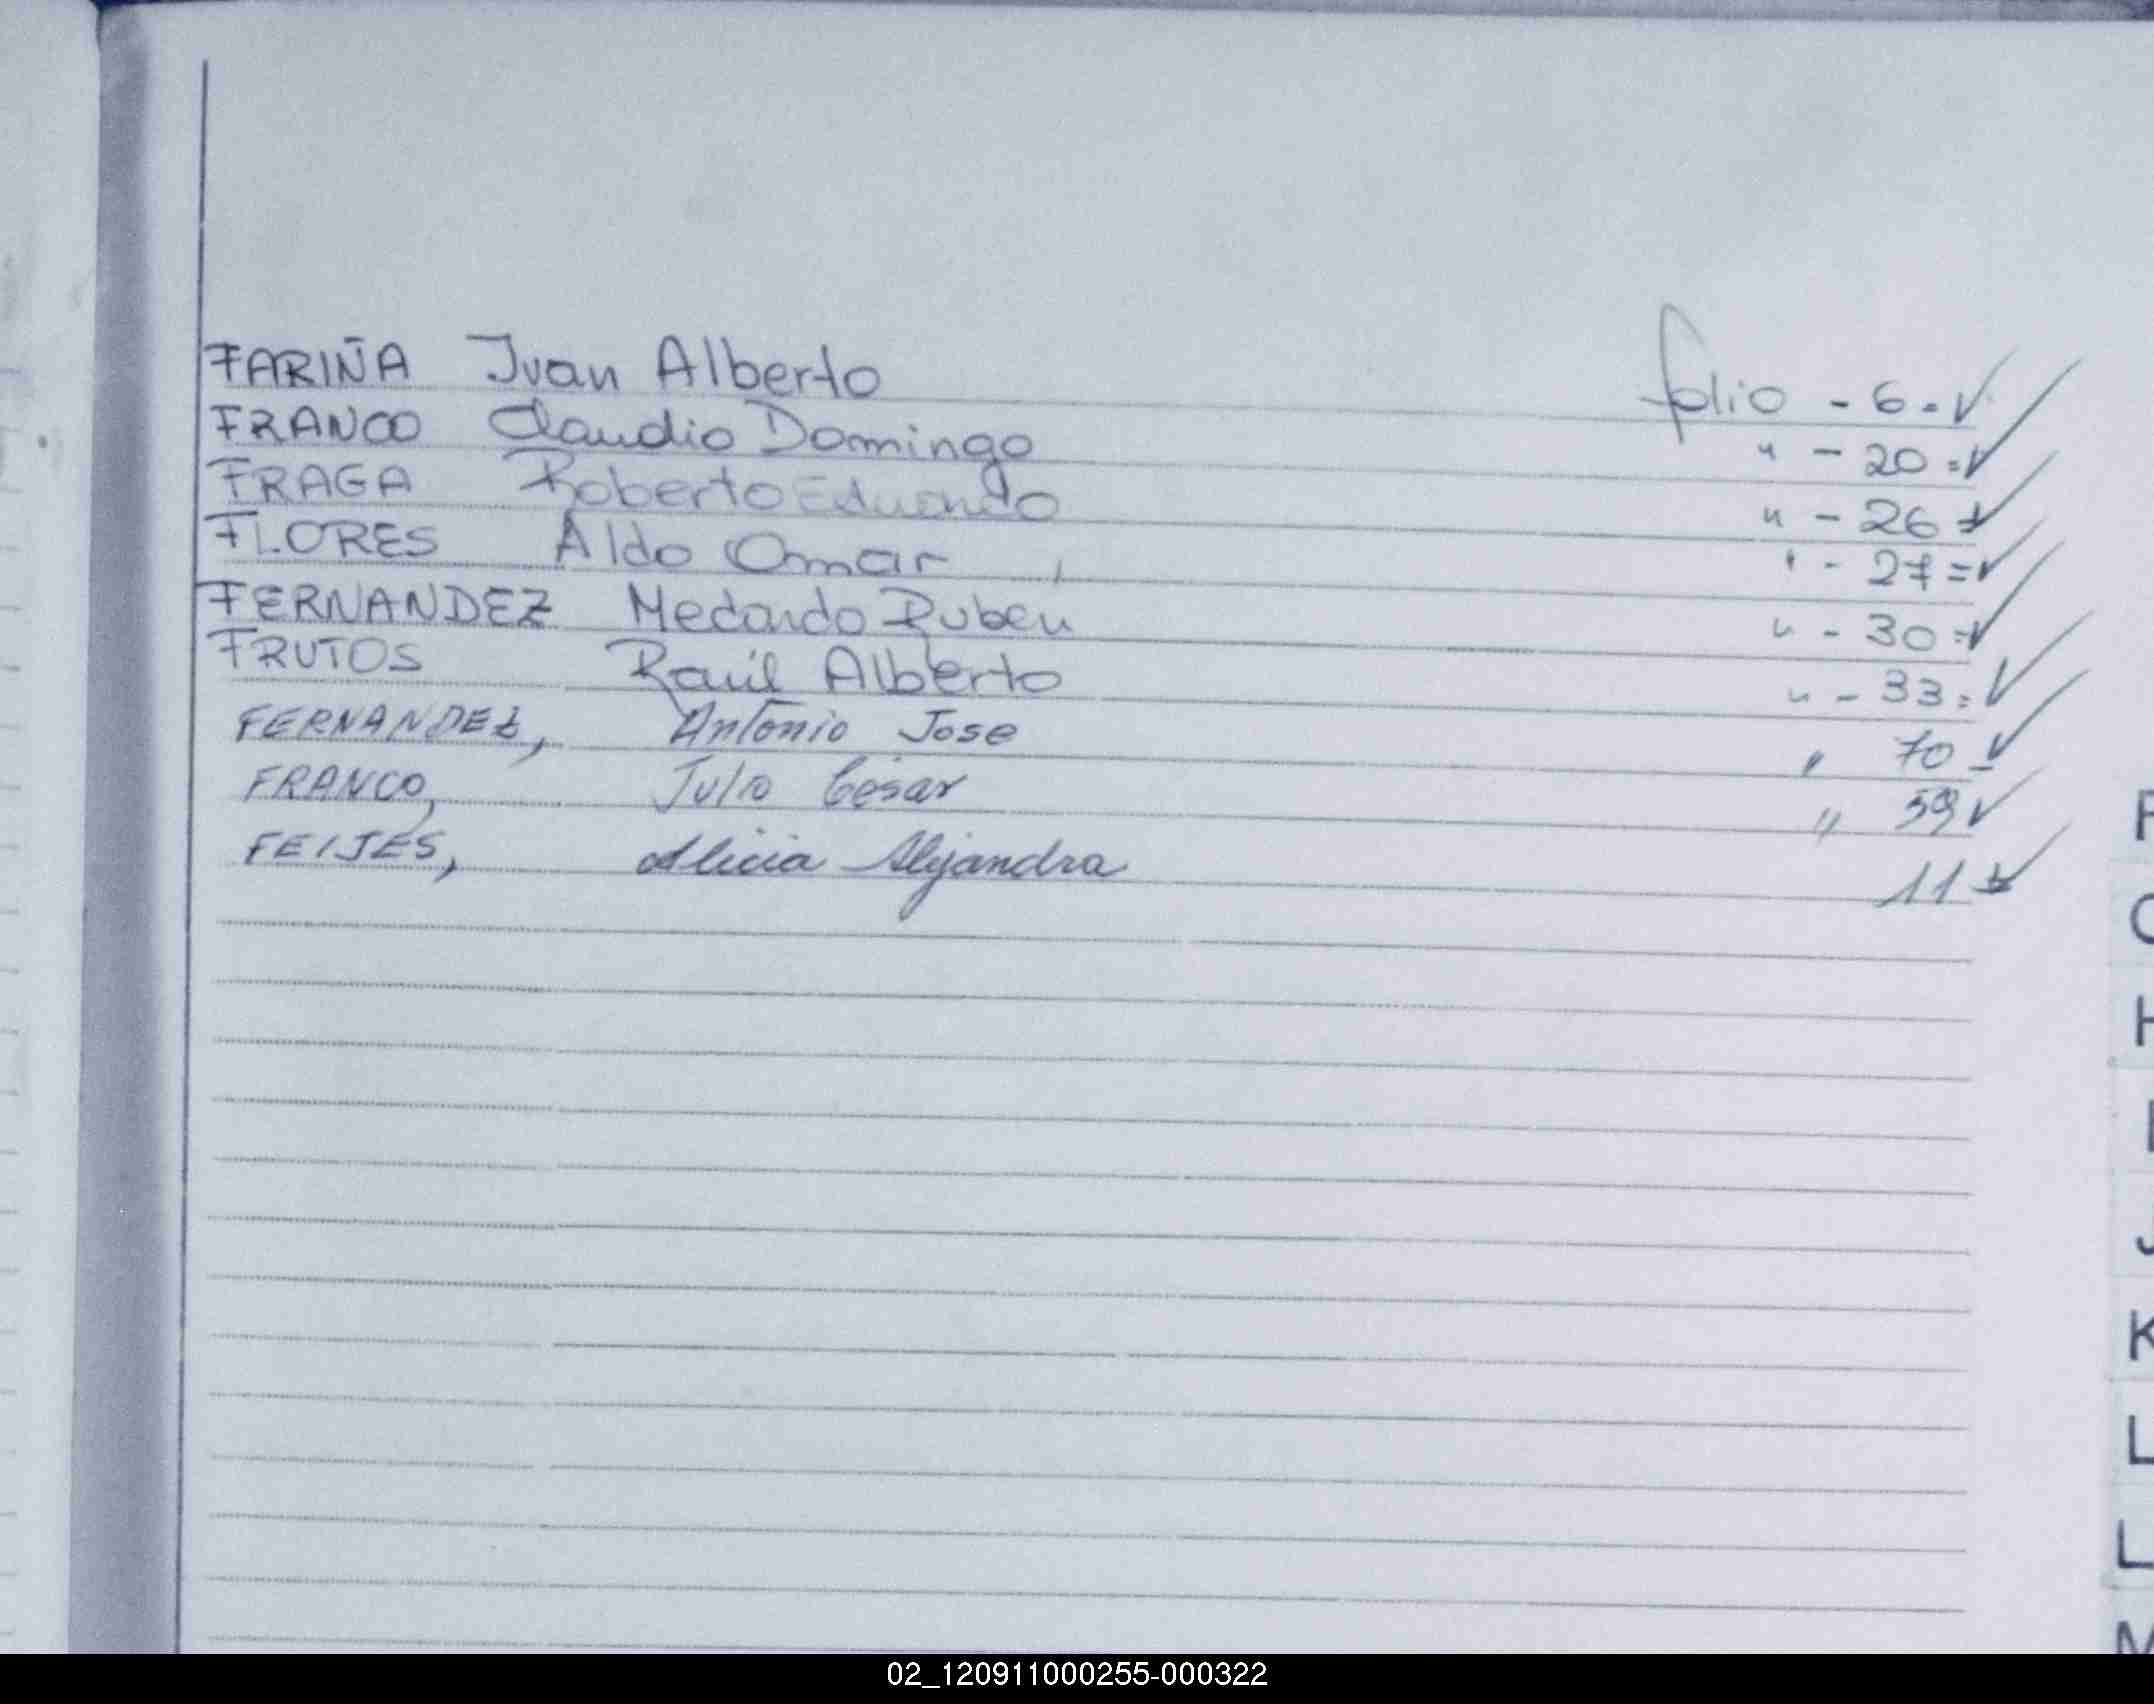 FARIÑA Juan Alberto folio - 6 - ✓
FRANCO Claudio Domingo " - 20 = ✓
FRAGA Roberto Eduardo " - 26 = ✓
FLORES Aldo Omar " - 27 = ✓
FERNANDEZ Medardo Ruben " - 30 = ✓
FRUTOS Raúl Alberto " - 33 = ✓
FERNANDEZ, Antonio Jose " 70 - ✓
FRANCO, Julio César " 59 ✓
FEIJES, Alicia Alejandra 11 = ✓
F
G
H
I
J
K
L
L
M
02_120911000255-000322